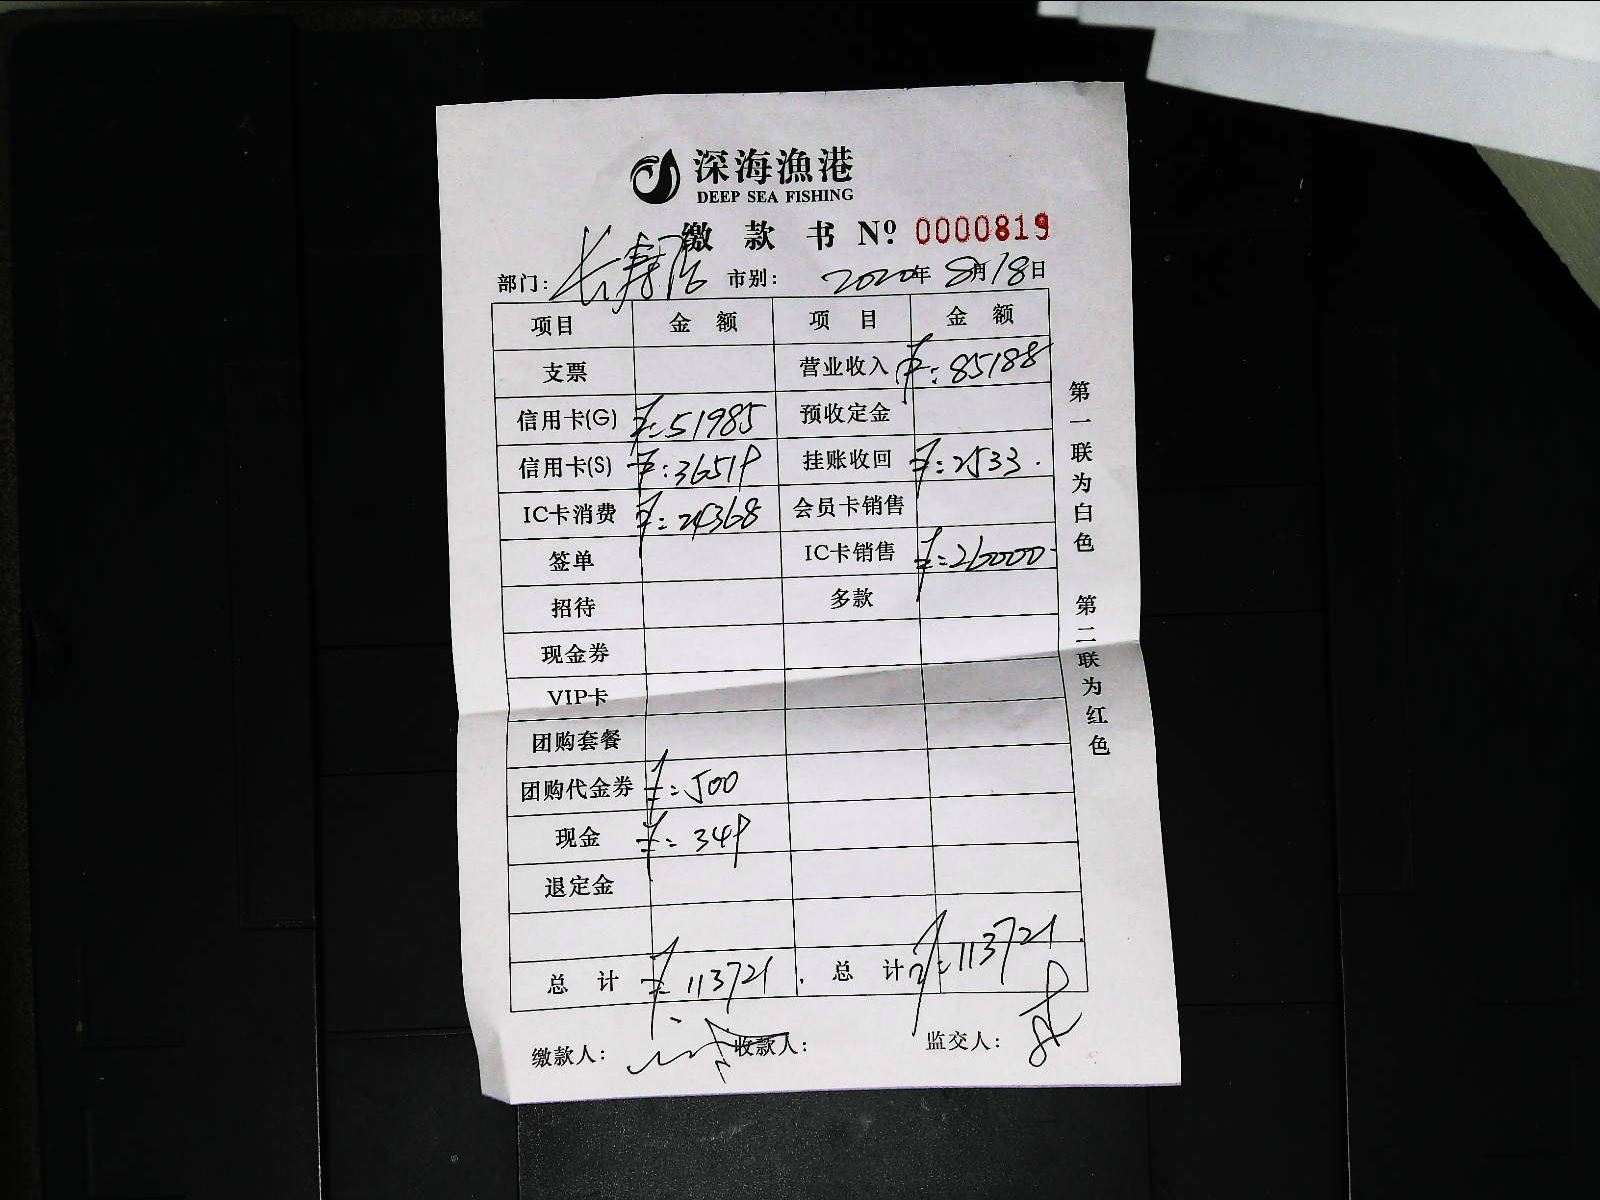 深海漁港
DEEP SEA FISHING
缴款书 Nº 0000819
部门: 长寿 市别: 2020年8月18日
项目 金额 项目 金额
支票 营业收入 ¥:85188
信用卡(G) ¥:51985 预收定金
信用卡(S) ¥:36519 挂账收回 ¥:2533.
IC卡消费 ¥:24368 会员卡销售
签单 IC卡销售 ¥:26000-
招待 多款
现金券
VIP卡
团购套餐
团购代金券 ¥:500
现金 ¥:349
退定金
总计 ¥:113721. 总计 ¥:113721.
缴款人: 收款人: 监交人:
第一联为白色 第二联为红色